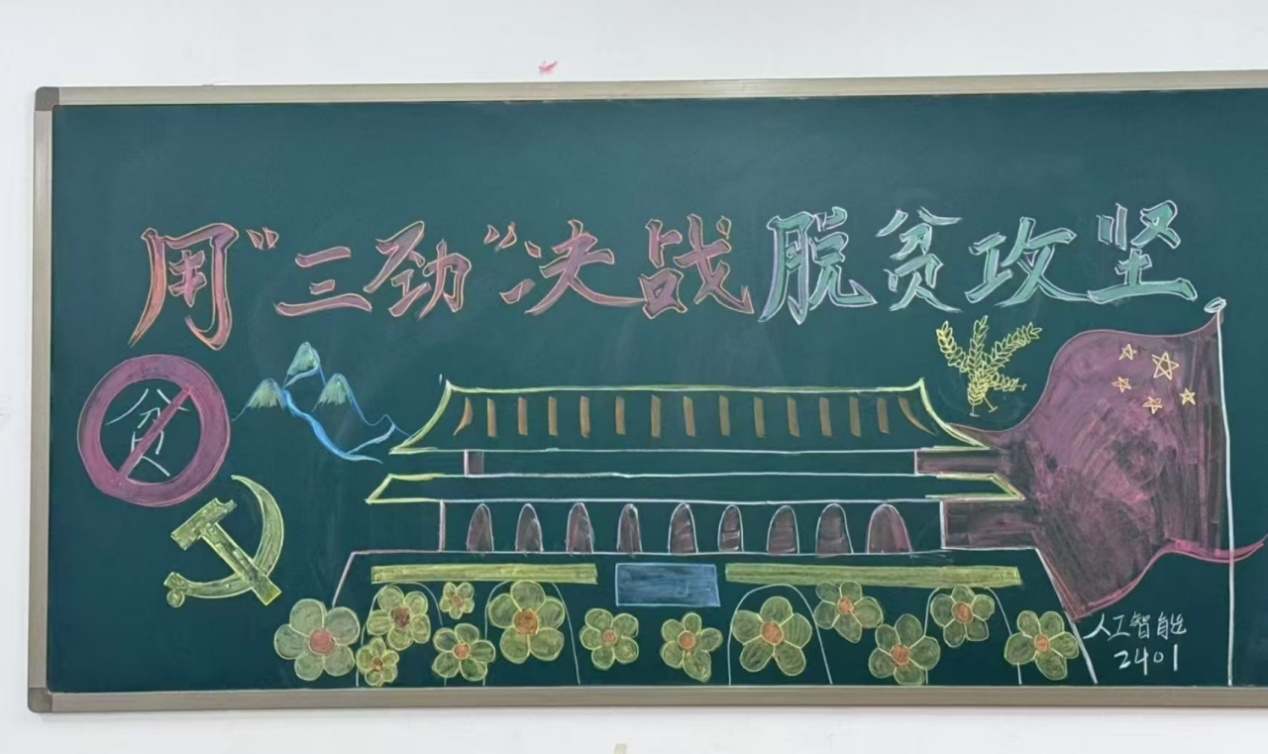 用“三劲”决战脱贫攻坚
贫
人工智能
2401